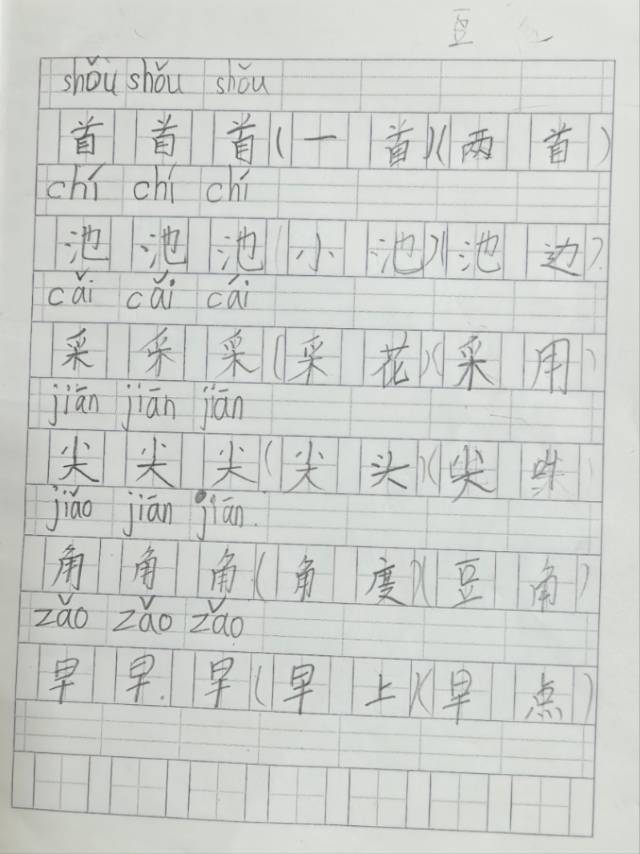 豆
shǒu shǒu shǒu
首 首 首 (一 首)(两 首)
chí chí chí
池 池 池 (小 池)(池 边)
cǎi cǎi cái
采 采 采 (采 花)(采 用)
jiān jiān jiān
尖 尖 尖 (尖 头)(尖
jiǎo jiān jiān.
角 角 角 (角 度)(豆 角)
zǎo zǎo zǎo
早 早. 早 (早 上)(早 点)